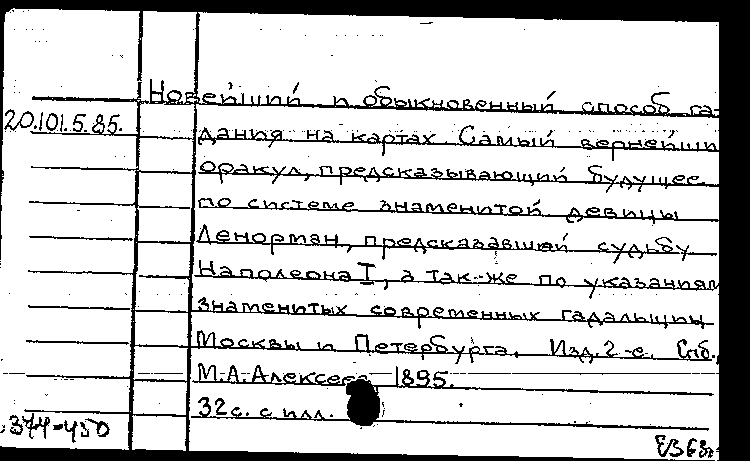 Новейший и обыкновенный способ га-
20.101.5.85. дания на картах. Самый вернейши
оракул, предсказывающий будущее
по системе знаменитой девицы
Ленорман, предсказавшей судьбу
Наполеона I, а так-же по указаниям
знаменитых современных гадальщиц
Москвы и Петербурга. Изд. 2-е. Спб.,
М.А.Алексеев 1895.
32с. с илл.
374-450